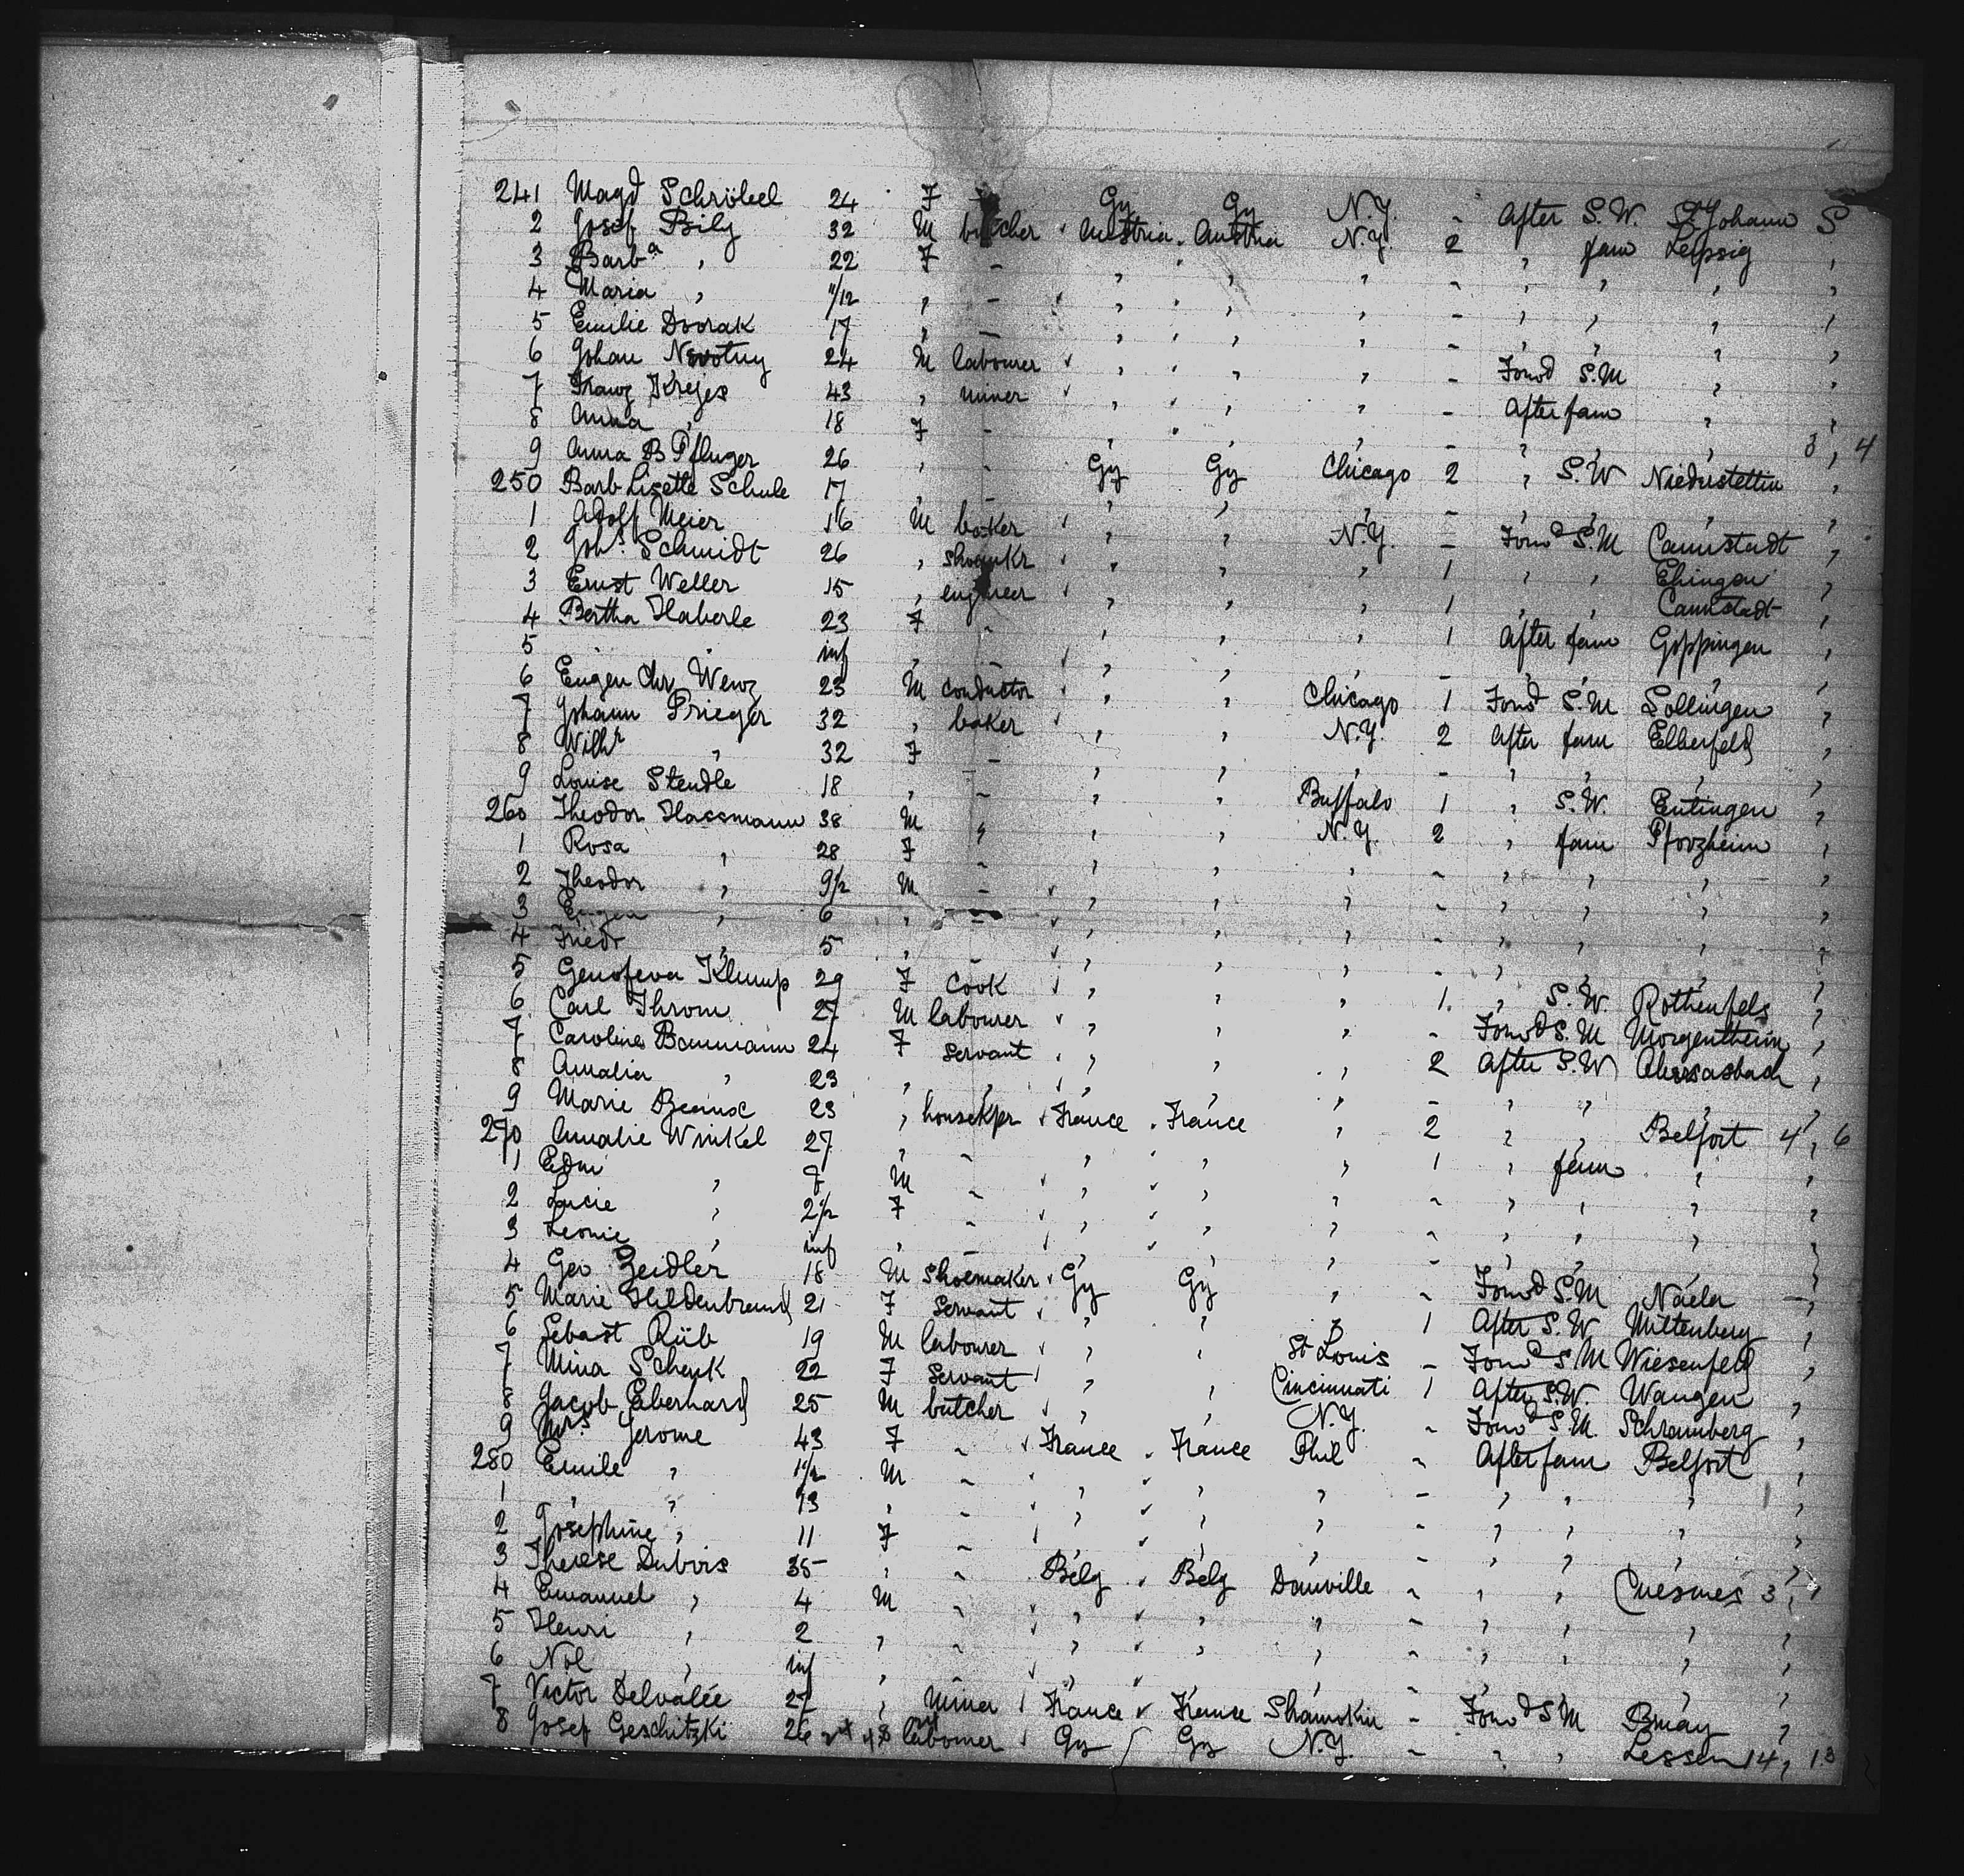 241 Magd Schröbel 24 F - Gy Gy N.Y. - After S.W. St Johann S
2 Josef Bily 32 M butcher Austria Austria N.Y. 2 , fam Leipsig ,
3 Barbª , 22 F - , , , - , , , ,
4 Maria , 11/12 , - , , , - , , , ,
5 Emilie Dvorak 17 , - , , , - , , , ,
6 Johan Novotny 24 M labourer , , , - Forwd S.M , ,
7 Franz Krejes 43 , miner , , , - After fam , ,
8 Anna , 18 F - , , , - , , , 3, 4
9 Anna B Pfluger 26 , - Gy Gy Chicago 2 , S.W Niederstettin ,
250 Barb Lisette Schule 17 , - , , , - , , , ,
1 Adolf Meier 16 M baker , , N.Y. - Forwd S.M Cannstadt ,
2 Johs. Schmidt 26 , shoemkr , , , 1 , , Ehingen ,
3 Ernst Weller 15 , engineer , , , 1 , , Cannstadt ,
4 Bertha Haberle 23 F - , , , 1 After fam Goppingen ,
5 inf , - , , , - , , , ,
6 Eugen Chr Wenz 23 M conductor , , Chicago 1 Forwd S.M Sollingen ,
7 Johann Prieger 32 , baker , , N.Y. 2 After fam Elberfeld ,
8 Wilhr , 32 F - , , , - , , , ,
9 Louise Stendle 18 , - , , Buffalo 1 , S.W. Eutingen ,
260 Theodor Hassmann 38 M , , , N.Y. 2 , fam Pforzheim ,
1 Rosa , 28 F - , , , - , , , ,
2 Theodor , 9½ M - , , , - , , , ,
3 Eugen , 6 , - , , , - , , , ,
4 Friedr , 5 , - , , , - , , , ,
5 Genofeva Klump 29 F Cook , , , 1 , S.W Rothenfels ,
6 Carl Throm 27 M labourer , , , - Forwd S.M Morgentheim ,
7 Caroline Baumann 24 F Servant , , , 2 After S.W ,
8 Amalia , 23 , , , , , - , , , ,
9 Marie 23 , housekpr France France , 2 , , Belfort 4, 6
270 Amalie Winkel 27 , - , , , 1 , fam , ,
1 Edm , 7 M - , , , - , , , ,
2 Lucie , 2½ F - , , , - , , , ,
3 Leonie , inf , - , , , - , , , ,
4 Geo Zeidler 18 M Shoemaker Gy Gy , - Forwd S.M Naela ,
5 Marie Hildenbrand 21 F Servant , , , 1 After S.W Miltenberg ,
6 Sebast Rüb 19 M labourer , , St Louis - Forwd S.M Wiesenfeld ,
7 Mina Schenk 22 F Servant , , Cincinnati 1 After S.W. Wangen ,
8 Jacob Eberhard 25 M butcher , , N.Y. - Forwd S.M. Schramberg ,
9 Mrs. Jerome 43 F - France France Phil - After fam Belfort ,
280 Emile , 1½ M - , , , - , , , ,
1 , , 13 , - , , , - , , , ,
2 Josephine , 11 F - , , , - , , , ,
3 Therese Dubois 35 , - Belg Belg Danville - , , Cuesmes 3,
4 Emanuel , 4 M - , , , - , , , ,
5 Henri , 2 , - , , , - , , , ,
6 Nol , inf , - , , , - , , , ,
7 Victor Delvalée 27 , miner France France Shamokin - Forwd S M Bruay ,
8 Josef Geschitzki 26 labourer Gy Gy N.Y. - , , Lessen 14, 13